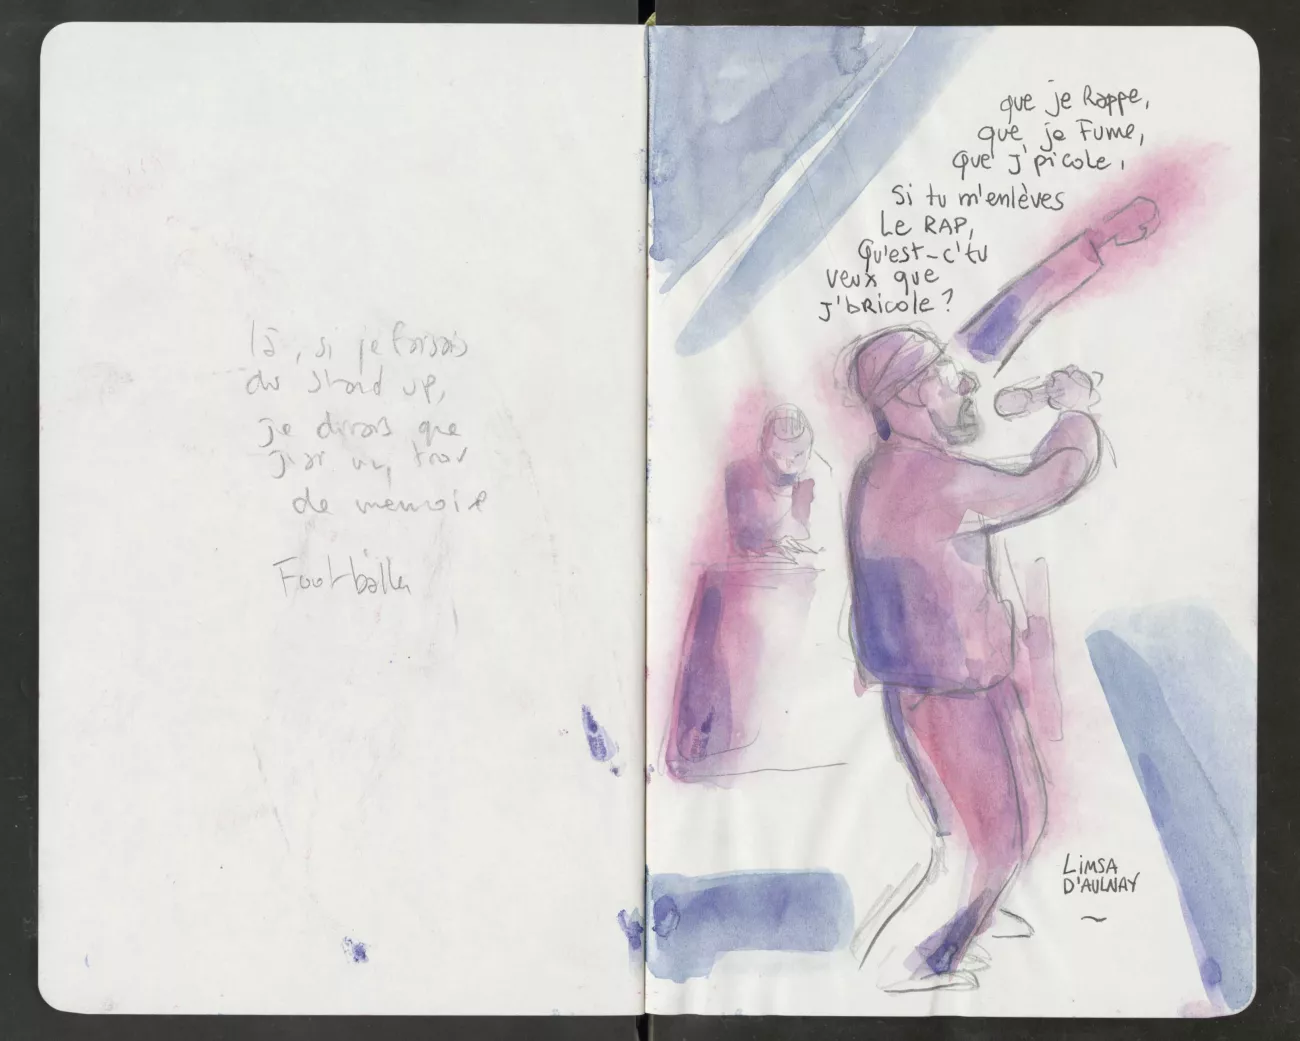 là, si je faisais
du stand up,
je dirais que
j'ai un trou
de memoire
Footballer
que je Rappe,
que je Fume,
que j'picole,
si tu m'enlèves
Le RAP,
Qu'est-c'tu
veux que
j'bRicole?
LiMSA
D'AULNAY
~